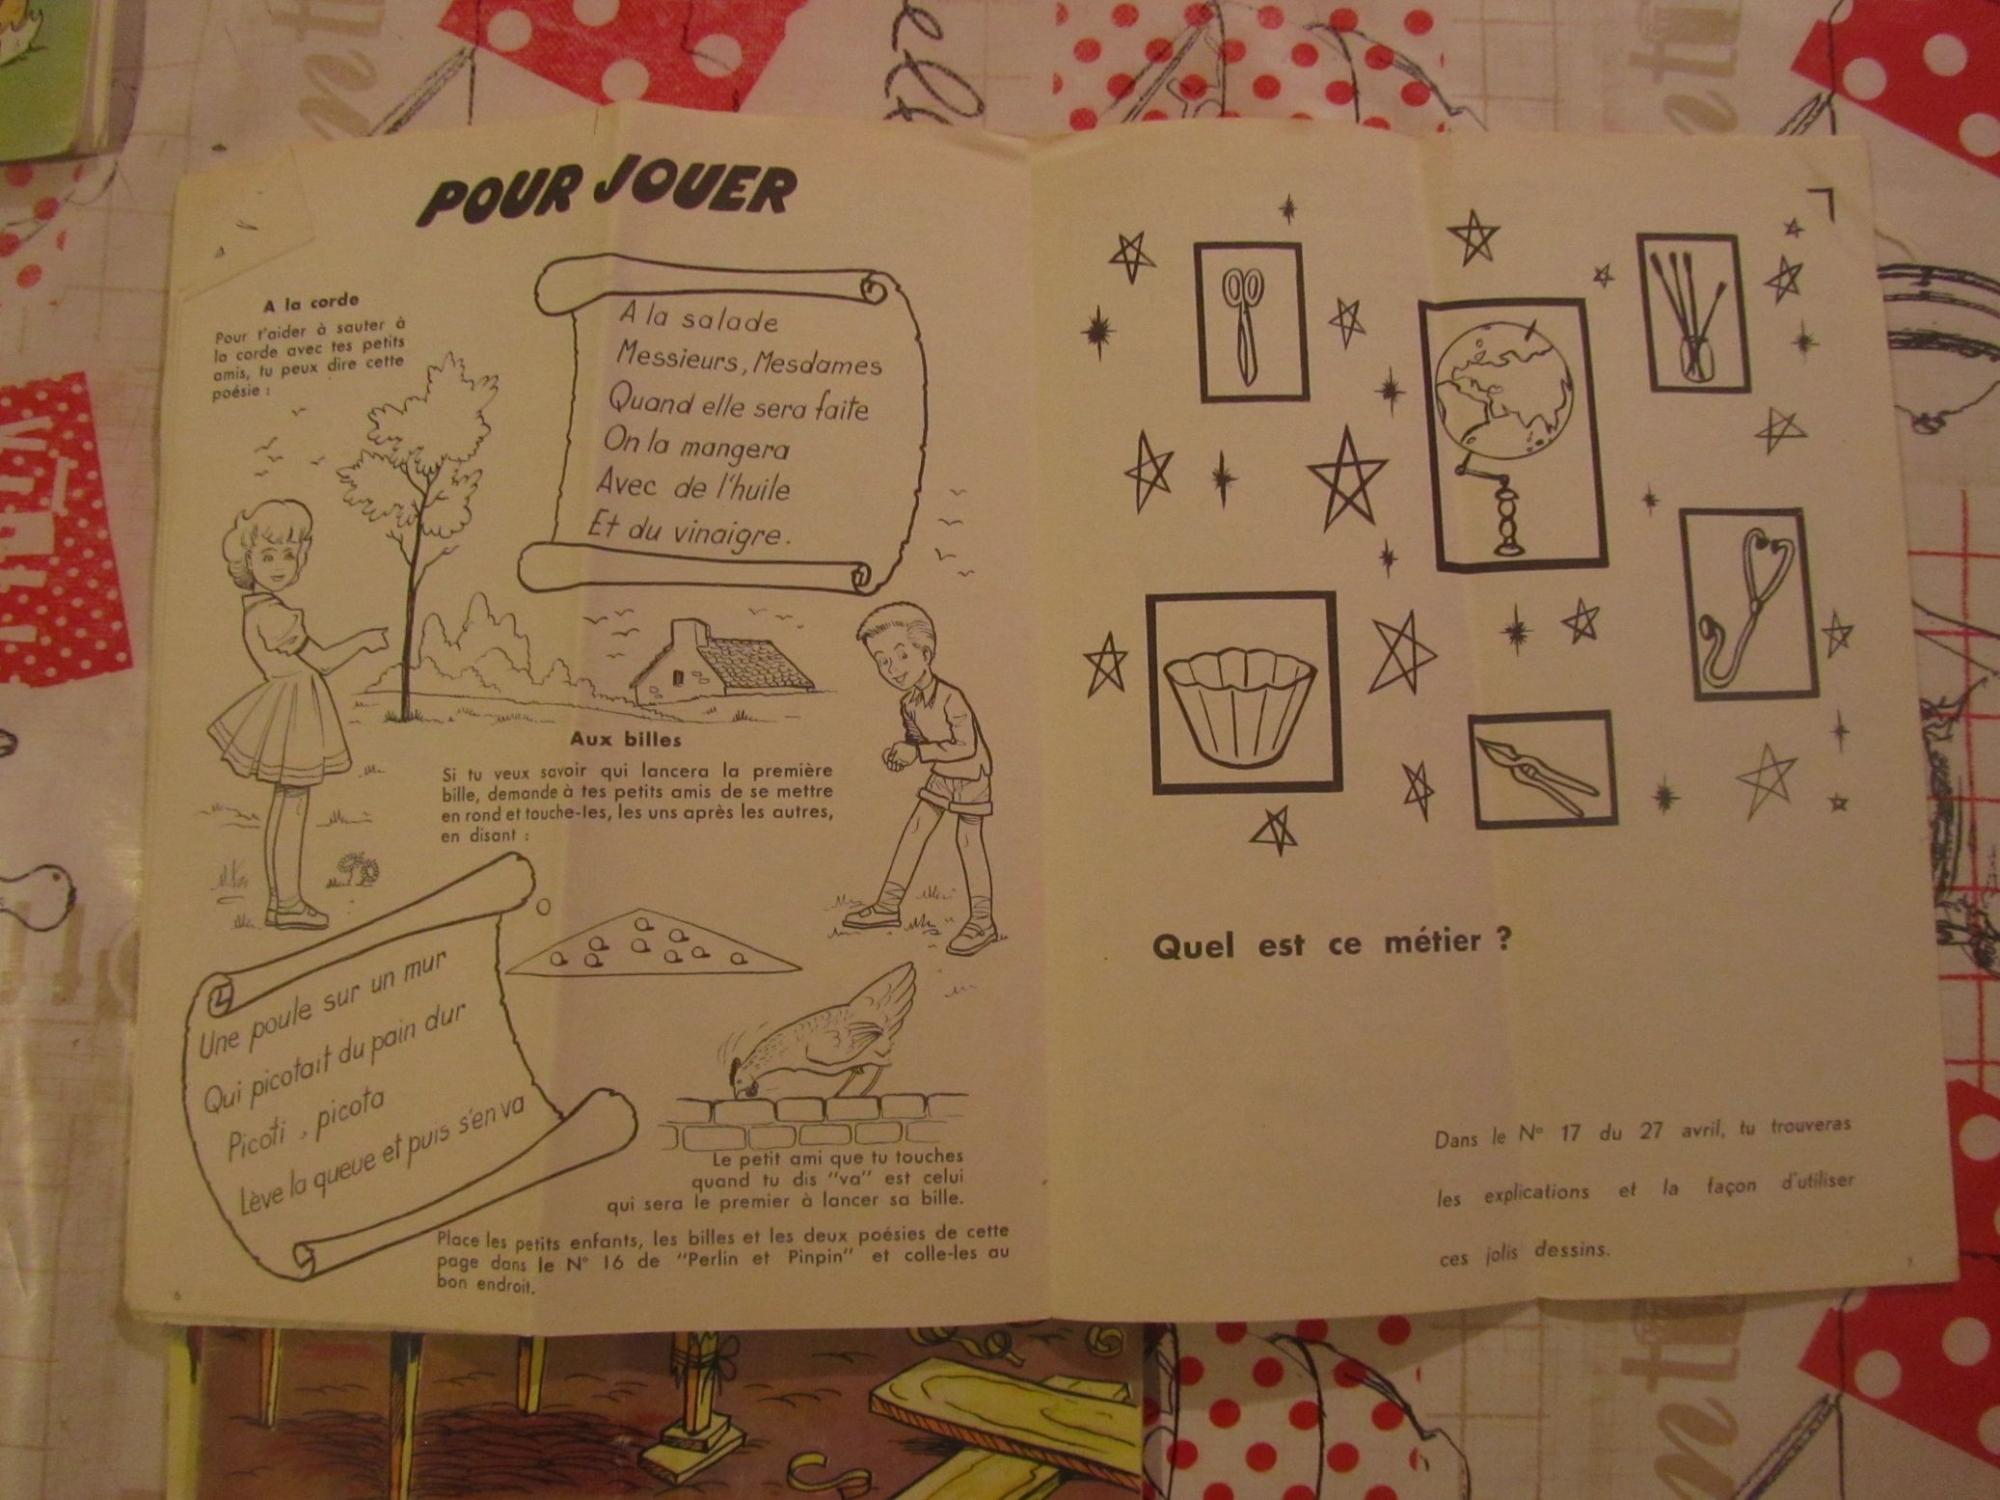 POUR JOUER
A la corde
Pour t'aider à sauter à
la corde avec tes petits
amis, tu peux dire cette
poésie :
A la salade
Messieurs, Mesdames
Quand elle sera faite
On la mangera
Avec de l'huile
Et du vinaigre.
Aux billes
Si tu veux savoir qui lancera la première
bille, demande à tes petits amis de se mettre
en rond et touche-les, les uns après les autres,
en disant :
Une poule sur un mur
Qui picotait du pain dur
Picoti, picota
Lève la queue et puis s'en va
Le petit ami que tu touches
quand tu dis "va" est celui
qui sera le premier à lancer sa bille.
Place les petits enfants, les billes et les deux poésies de cette
page dans le N° 16 de "Perlin et Pinpin" et colle-les au
bon endroit.
6
Quel est ce métier ?
Dans le N° 17 du 27 avril, tu trouveras
les explications et la façon d'utiliser
ces jolis dessins.